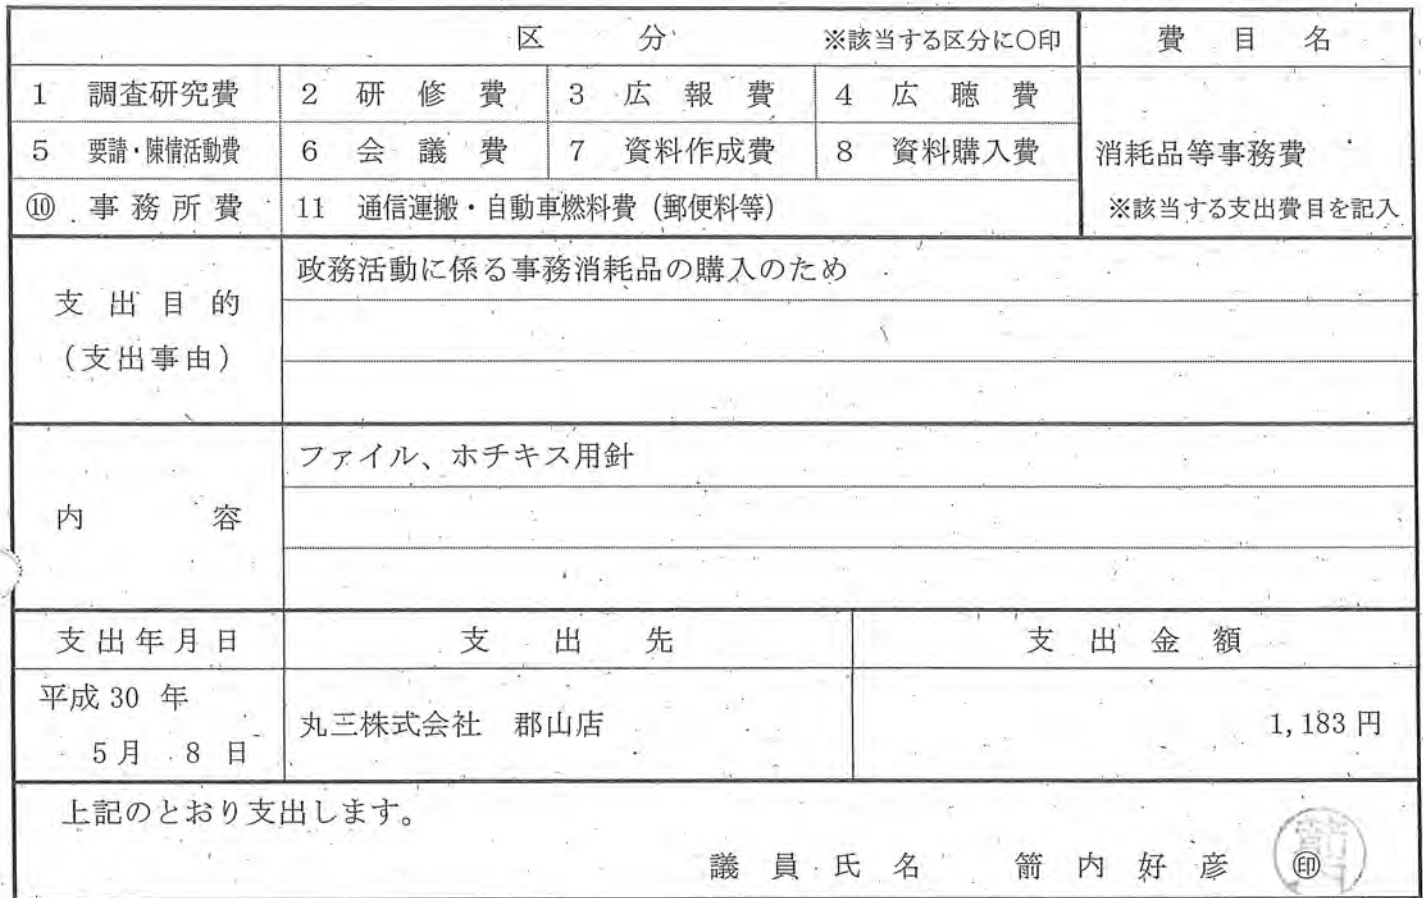 区 分 ※該当する区分に○印 費 目 名
1 調査研究費 2 研 修 費 3 広 報 費 4 広 聴 費
5 要請・陳情活動費 6 会 議 費 7 資料作成費 8 資料購入費 消耗品等事務費
⑩ 事務所費 11 通信運搬・自動車燃料費（郵便料等） ※該当する支出費目を記入
支出目的
（支出事由）
政務活動に係る事務消耗品の購入のため
内 容
ファイル、ホチキス用針
支出年月日 支 出 先 支 出 金 額
平成 30 年
5月 8 日
丸三株式会社 郡山店
1,183 円
上記のとおり支出します。
議 員 氏 名 箭 内 好 彦 ㊞